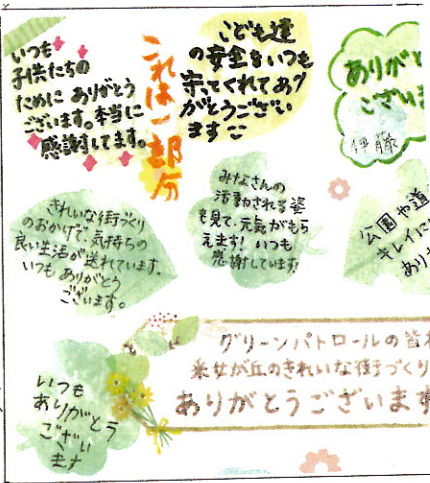 いつも
子供たちの
ために ありがとう
ございます。本当に
感謝してます。
これは一部分
こども達
の安全をいつも
守ってくれてあり
がとうござい
ます
ありがと
ございま
伊藤
きれいな街づくり
のおかげで、気持ちの
良い生活が送れています。
いつも ありがとう
ございます。
みなさんの
活動される姿
を見て、元気がもら
えます! いつも
感謝しています!
公園や道
キレイに
あり
グリーンパトロールの皆
采女が丘のきれいな街づくり
ありがとうございます
いつも
ありがとう
ござい
ます